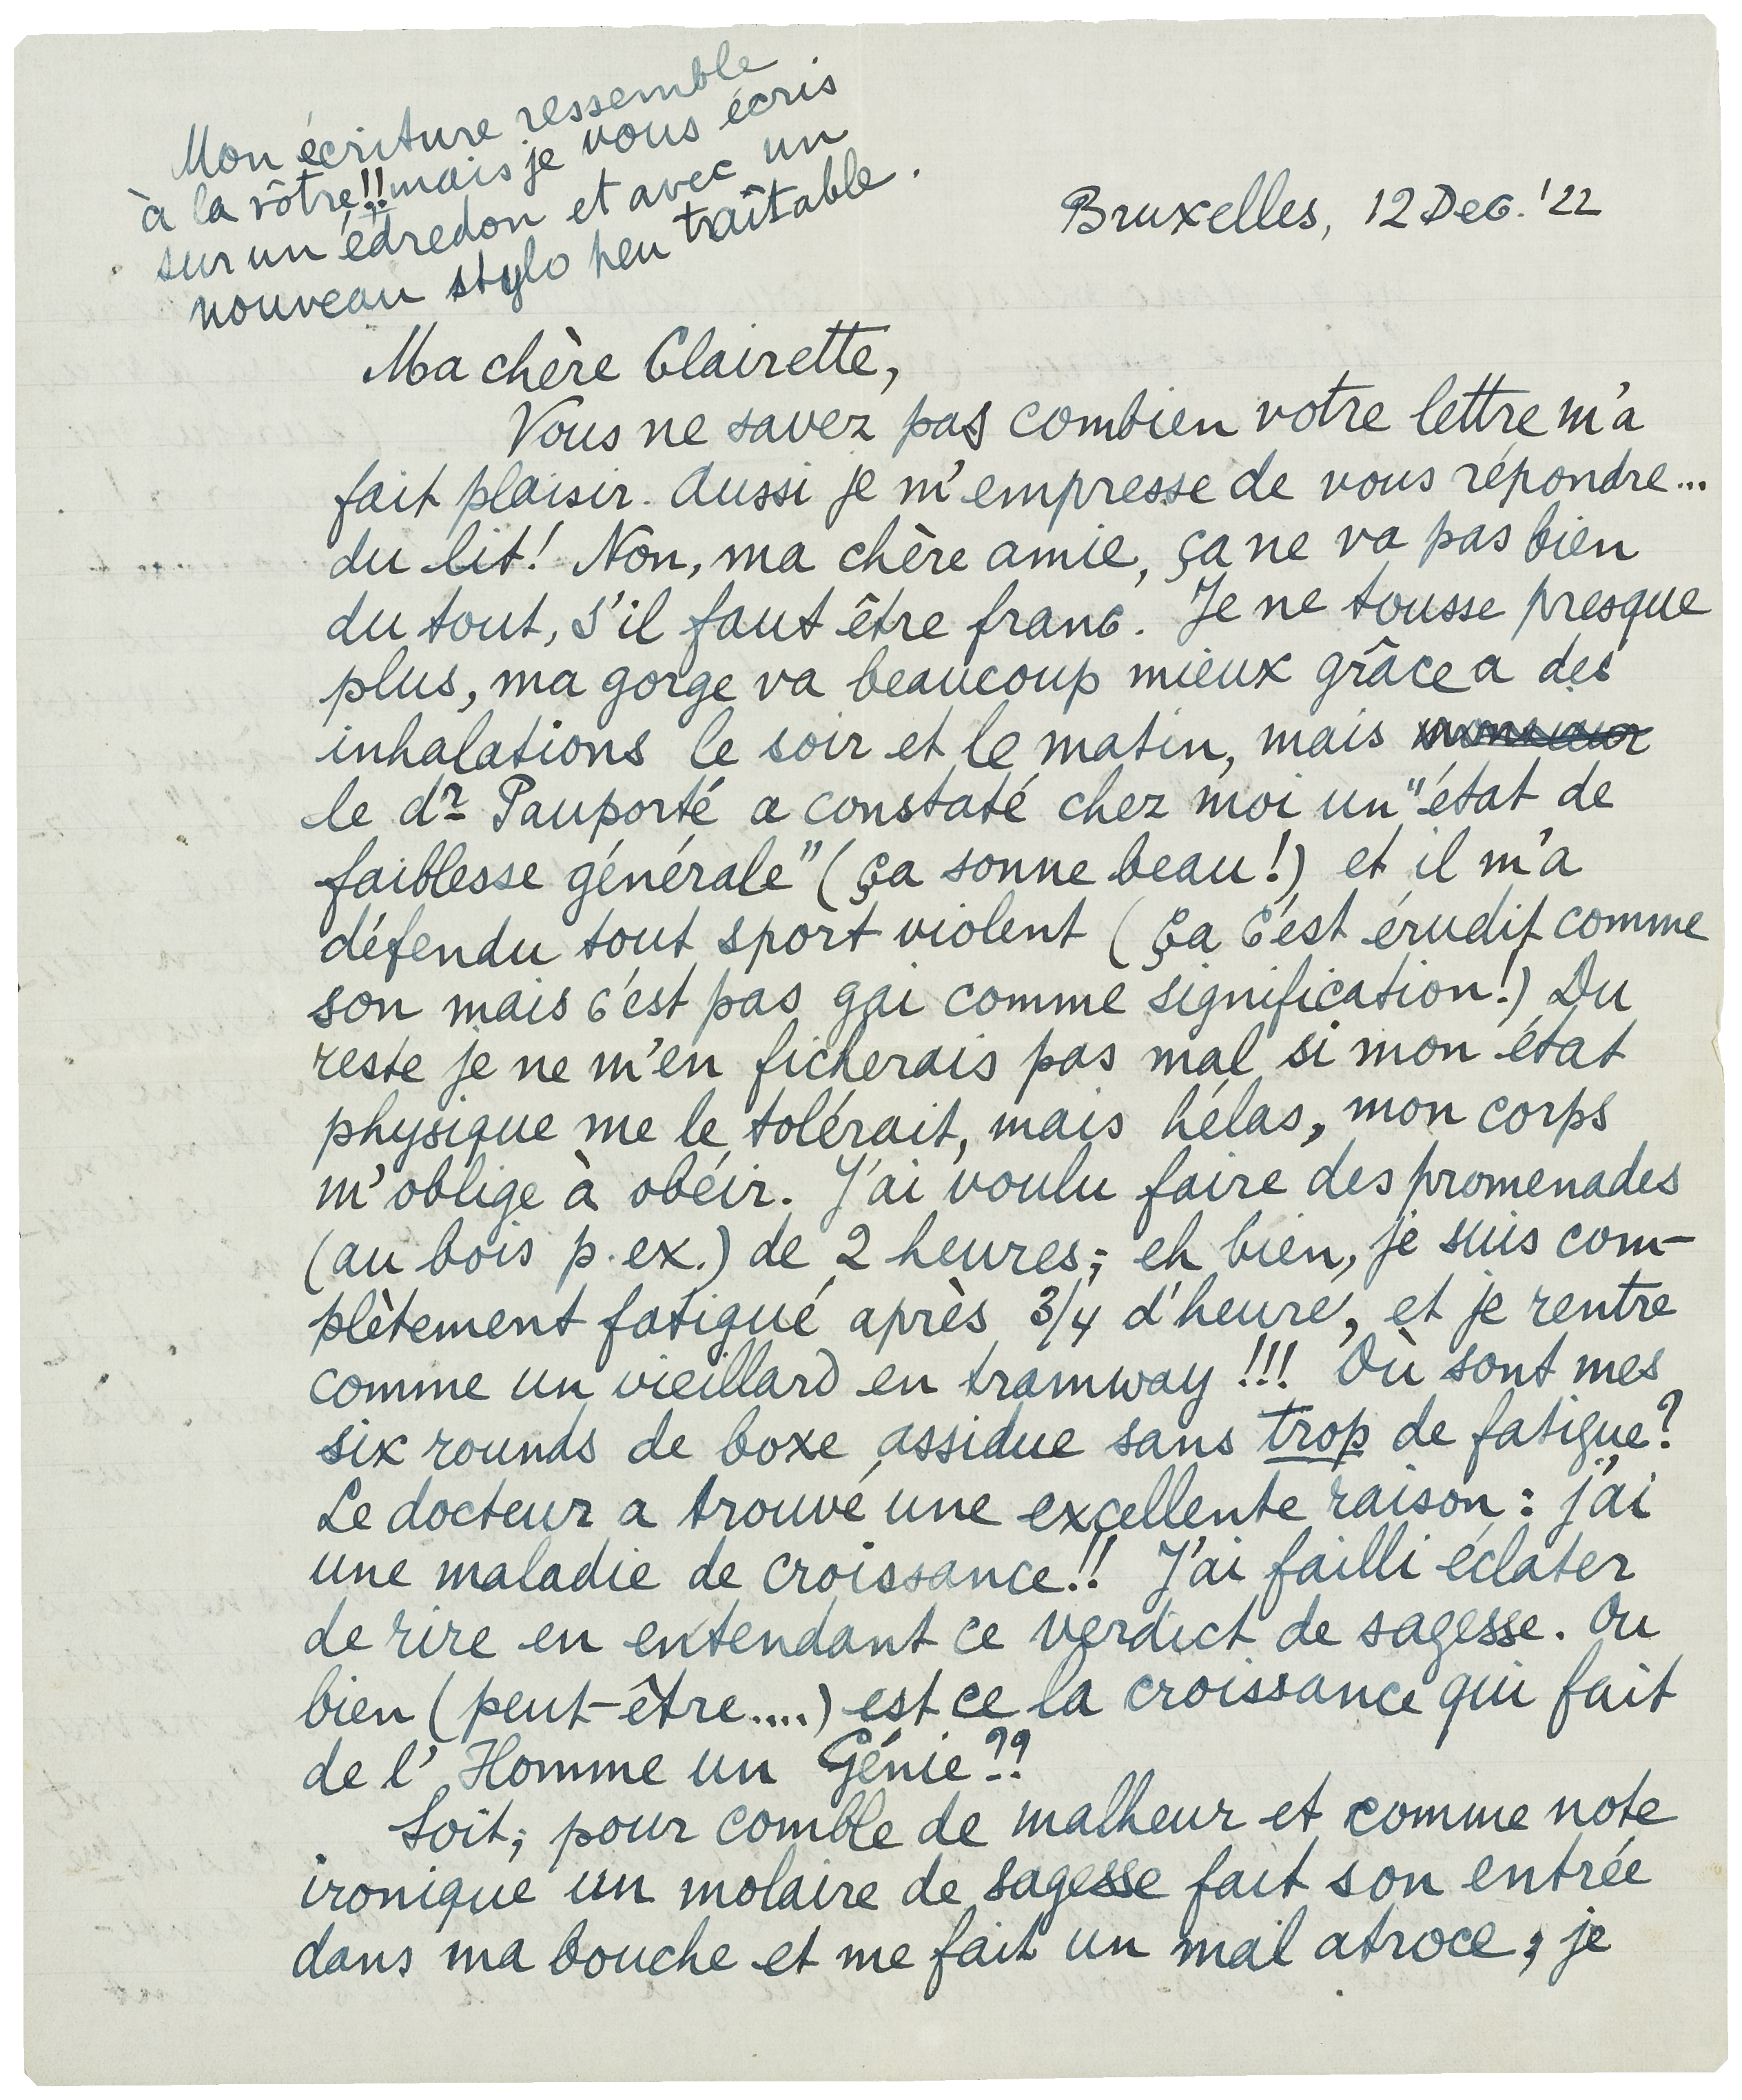 Mon écriture ressemble
à la vôtre!! mais je vous écris
sur un édredon et avec un
nouveau stylo peu traîtable.
Bruxelles, 12 Dec. '22
Ma chère Clairette,
Vous ne savez pas combien votre lettre m'a
fait plaisir. Aussi je m'empresse de vous répondre...
du lit! Non, ma chère amie, ça ne va pas bien
du tout, s'il faut être franc. Je ne tousse presque
plus, ma gorge va beaucoup mieux grâce a des
inhalations le soir et le matin, mais
le dr Pauporté a constaté chez moi un "état de
faiblesse générale" (ça sonne beau!) et il m'a
défendu tout sport violent (Ça c'est érudit comme
son mais c'est pas gai comme signification!) Du
reste je ne m'en ficherais pas mal si mon état
physique me le tolérait, mais hélas, mon corps
m'oblige à obéir. J'ai voulu faire des promenades
(au bois p. ex.) de 2 heures; eh bien, je suis com-
plètement fatigué après 3/4 d'heure, et je rentre
comme un vieillard en tramway!!! Où sont mes
six rounds de boxe assidue sans trop de fatigue?
Le docteur a trouvé une excellente raison: j'ai
une maladie de croissance!! J'ai failli éclater
de rire en entendant ce verdict de sagesse. Ou
bien (peut-être....) est ce la croissance qui fait
de l'Homme un Génie??
Soit; pour comble de malheur et comme note
ironique un molaire de sagesse fait son entrée
dans ma bouche et me fait un mal atroce; je